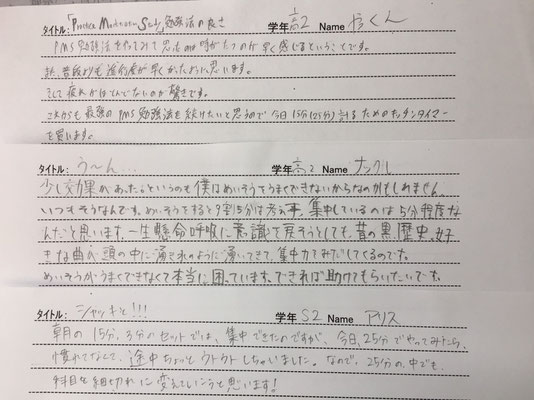 タイトル:「Practice Meditation Study」勉強法の良さ 学年 高2 Name やっくん
PMS勉強法をやってみて思ったのは時がたつのが早く感じるということです。
又、普段よりも進む度が早くかったように思います。
そして疲れがほとんどでないのが驚きです。
これからも最強のPMS勉強法を続けたいと思うので今日15分(25分)計るためのキッチンタイマー
を買います。
タイトル: う〜ん... 学年 高2 Name ナックル
少し効果があった。というのも僕はめいそうをうまくできないからなのかもしれません
いつもそうなんです。めいそうをすると9割5分は考え事。集中しているのは5分程度な
んだと思います。一生懸命呼吸に意識を戻そうとしても、昔の黒歴史や好
きな曲が頭の中に湧き水のように湧いてきて、集中力をみだしてくるのです。
めいそうがうまくできなくて本当に困っています。できれば助けてもらいたいです。
タイトル: シャッキと!!! 学年 S2 Name アリス
朝の15分、3分のセットでは、集中できたのですが、今日、25分でやってみたら、
慣れてなくて、途中ちょっとウトウトしちゃいました。なので、25分の中でも、
科目を細切れに変えていこうと思います!